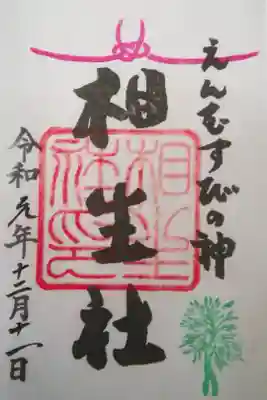 えんむすびの神
相生社
令和元年十二月十一日
相生社印